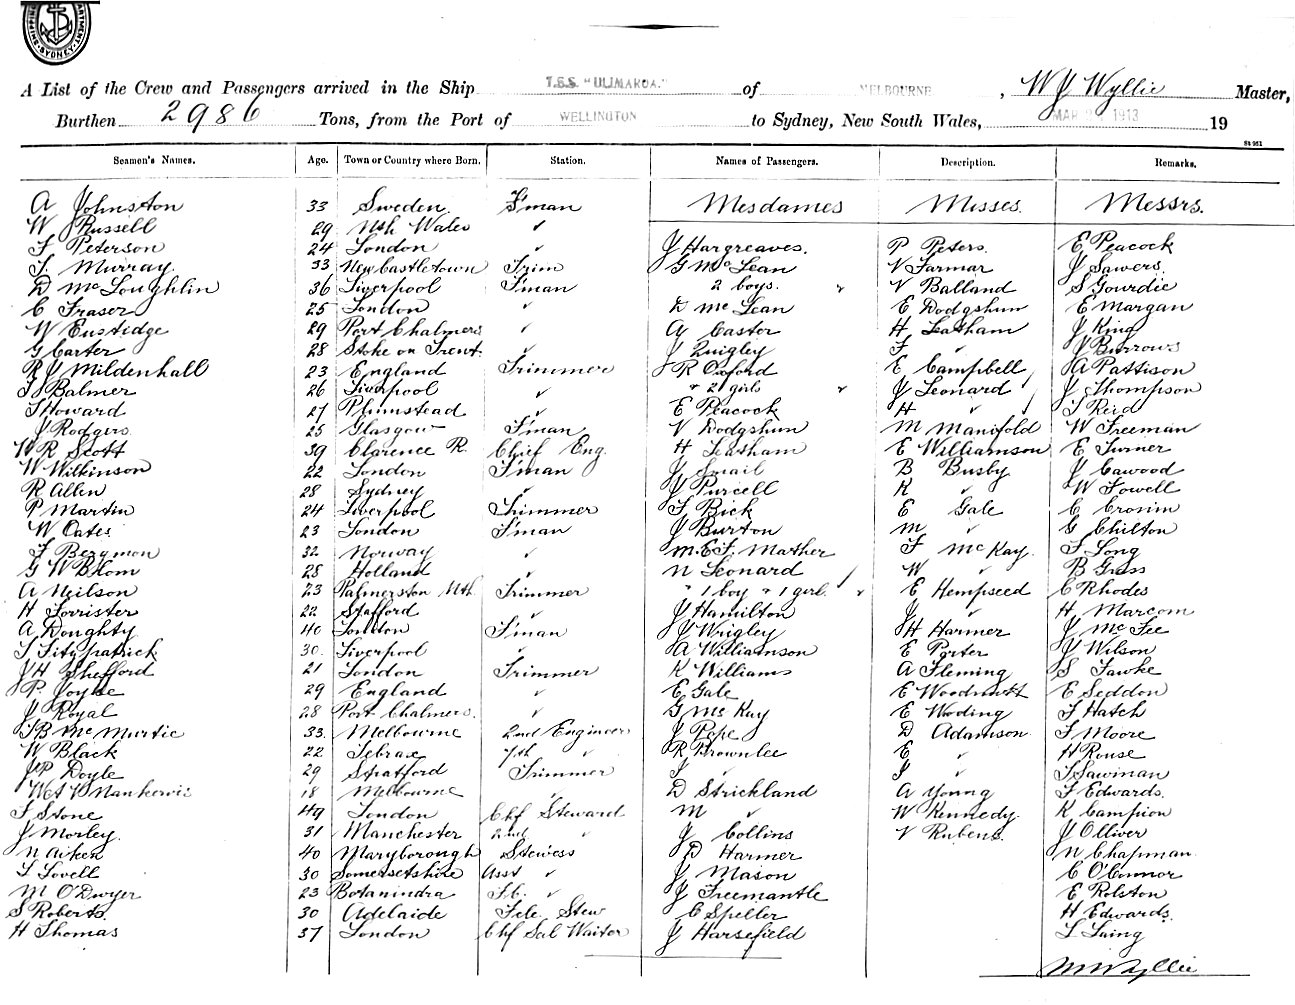 SHIPPING DEPARTMENT SYDNEY
A List of the Crew and Passengers arrived in the Ship T.S.S. "ULIMAROA." of MELBOURNE, W J Wyllie Master,
Burthen 2986 Tons, from the Port of WELLINGTON to Sydney, New South Wales, MAR 1913 19
St 961
Seamen's Names. Age. Town or Country where Born. Station. Names of Passengers. Description. Remarks.
A Johnston 33 Sweden F'man Mesdames Misses. Messrs.
W Russell 29 Nth Wales ✓
F Peterson 24 London ✓ J Hargreaves. P Peters. E Peacock
J. Murray 33 New Castletown Trim G McLean V Farmar J Sawers
D McLoughlin 36 Liverpool F'man 2 boys. " V Balland S Gourdie
C Fraser 25 London ✓ D McLean E Dodgshun E Margan
W Eustidge 29 Port Chalmers ✓ A Caster H Leatham J King
G Carter 28 Stoke on Trent ✓ J Quigley F ✓ J Burrows
R J Mildenhall 23 England Trimmer R Oxford E Campbell A Pattison
Balmer 26 Liverpool ✓ " 2 girls " J Leonard J Thompson
Howard 27 Plumstead ✓ E Peacock H ✓ J Reid
J Rodgers 25 Glasgow F'man V Dodgshun M Manifold W Freeman
W R Scott 39 Clarence R. Chief Eng. H Leatham E Williamson E Turner
W Wilkinson 22 London F'man J Smail B Busby J Cawood
R Allen 28 Sydney ✓ J Purcell K ✓ W Fowell
P Martin 24 Liverpool Trimmer F Bick E Gale C Cronin
W Oates 23 London F'man J Burton M ✓ G Chilton
F Bergmon 32 Norway ✓ M.E.F. Mather F McKay. F Long
G W Blom 28 Holland ✓ N Leonard W ✓ B Gress
A Neilson 23 Palmerston Nth Trimmer " 1 boy " 1 girl. " E Hempseed C Rhodes
H Forrister 22 Stafford ✓ J Hamilton J ✓ H Marcom
A Doughty 40 London F'man J Wrigley H Harmer J McFee
J Fitzpatrick 30 Liverpool ✓ A Williamson E Porter J Wilson
J H Shefford 21 London Trimmer K Williams A Fleming S Fawke
P Joyce 29 England ✓ E Gale E Woodnutt E Seddon
J Royal 28 Port Chalmers. ✓ G McKay E Wooding F Hatch
J B McMurtie 33. Melbourne 2nd Engineer J Pope D Adamson F Moore
W Black 22 7th ✓ R Brownlee E ✓ H Rouse
J P Doyle 29 Stratford Trimmer J ✓ J ✓ J Sawinan
18 Melbourne D Strickland A Young F Edwards.
F Stone 49 London Chf Steward M ✓ W Kennedy. K Campion
J Morley. 31 Manchester 2nd ✓ J Collins V Rubens. J Olliver
N Aitken 40 Maryborough Stewess D Harmer N Chapman
L Lovell 30 Somersetshire Asst ✓ J Mason C O'Connor
M O'Dwyer 23 Botanindra F.C. ✓ J Freemantle E Rolston
S Roberts. 30 Adelaide Fcle Stew C Speller H Edwards.
H Thomas 37 London Chf Sal Waiter J Harsefield L Laing
W J Wyllie